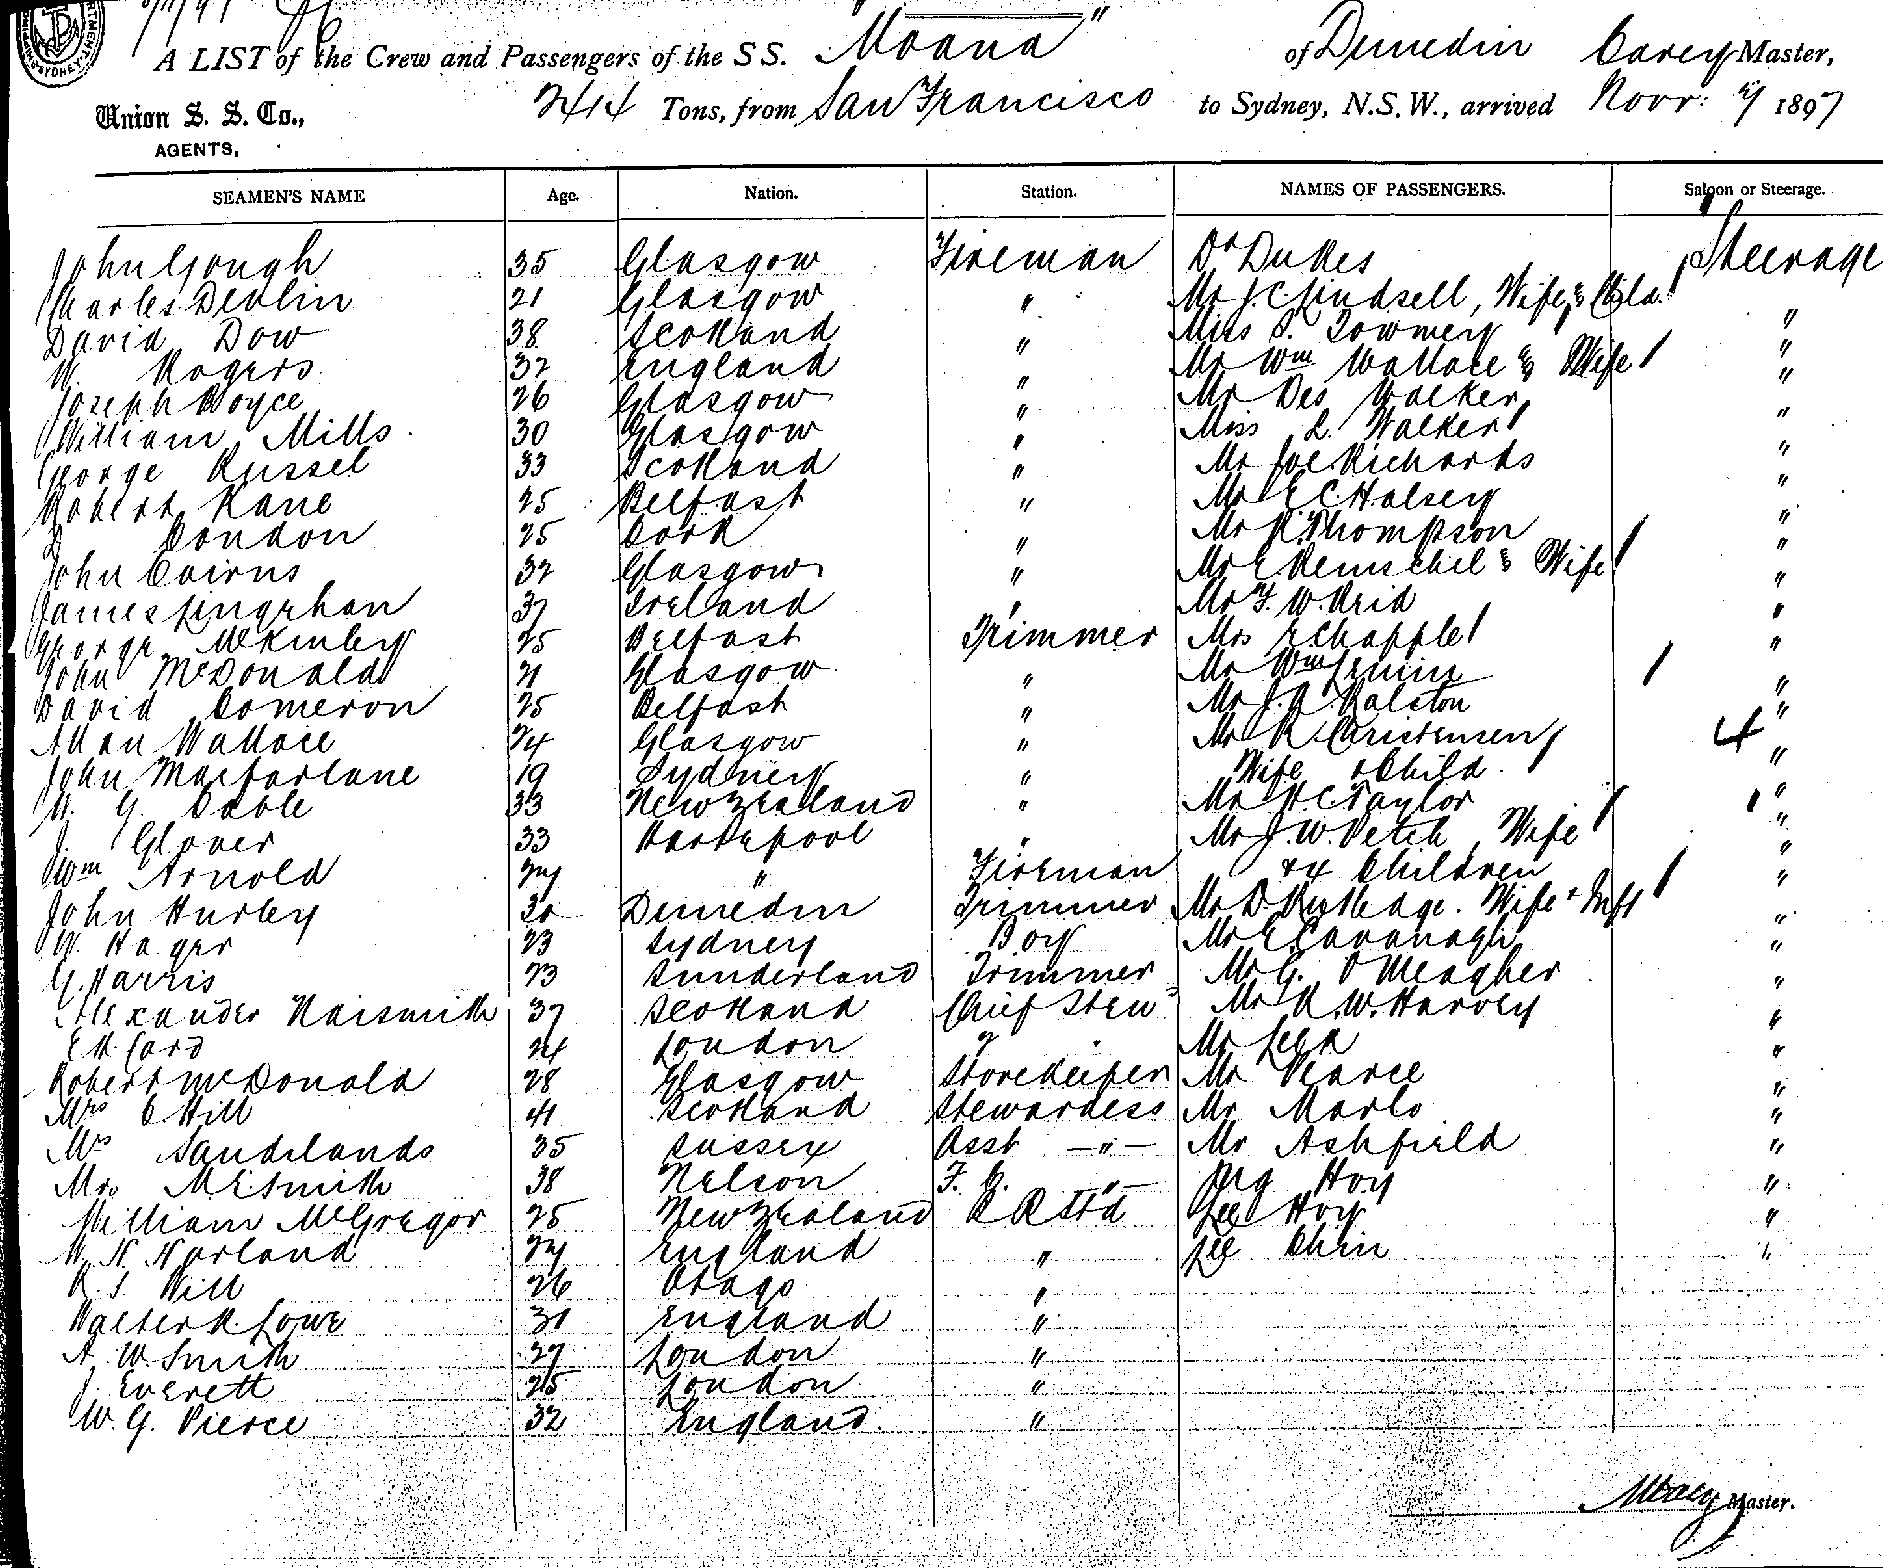 A LIST of the Crew and Passengers of the S S. "Moana" of Dunedin Carey Master,
Union S. S. Co., 2414 Tons, from San Francisco to Sydney, N.S.W., arrived Novr: 1897
AGENTS,
SEAMEN'S NAME Age. Nation. Station. NAMES OF PASSENGERS. Saloon or Steerage.
John Gough 35 Glasgow Fireman Dr Dukes Steerage
Charles Devlin 21 Glasgow " Mr J. C. Lindsell, Wife &
David Dow 38 Scotland " Miss "
W Rogers 32 England " Mr Wm Wallace & Wife "
Joseph Boyce 26 Glasgow " Mr Des Walker "
William Mills 30 Glasgow " Miss L. Walker "
George Russel 33 Scotland " Mr Joe Richards "
Robert Kane 25 Belfast " Mr E C. Halsey "
Condon 25 Cork " Mr R. Thompson "
John Cairns 32 Glasgow " Mr E & Wife "
James 37 Ireland " Mr F. W. Reid "
George McKinley 25 Belfast Trimmer Mrs E Chapple "
John McDonald 21 Glasgow " Mr Wm "
David Cameron 25 Belfast " Mr J. A. Ralston "
Allan Wallace 24 Glasgow " Mr R Christensen 4 "
John Macfarlane 19 Sydney " Wife & Child. "
W. G. Cable 33 New Zealand " Mr H C Taylor "
J. Glover 33 Hartlepool " Mr J. W. Petch, Wife "
Wm Arnold " Fireman & 4 Children "
John Hurley Dunedin Trimmer Mr D Rutledge. Wife + Inft "
W. Hager 23 Sydney Boy Mr E Cavanagh "
G. Harris 23 Sunderland Trimmer Mr G. O'Meagher "
Alexander Naismith 37 Scotland Chief Stew Mr R. W. Harvey "
E H Ford 24 London 2 " Mr Leek "
Robert McDonald 28 Glasgow Storekeeper Mr Pearce "
Mrs C Hill 41 Scotland Stewardess Mr Marlo "
Mrs Sandilands 35 Sussex Asst —"— Mr Ashfield "
Mrs M E Smith 38 Nelson F. C. —"— Hoy "
William McGregor 25 New Zealand R R Std Lee Hoy "
W. H. Norland England " Lee Chin "
R. S. Will 26 Otago "
Walter R Lowe 31 England "
A. W. Smith 27 London "
J. Everett 25 London "
W. G. Pierce 32 England. "
Master.